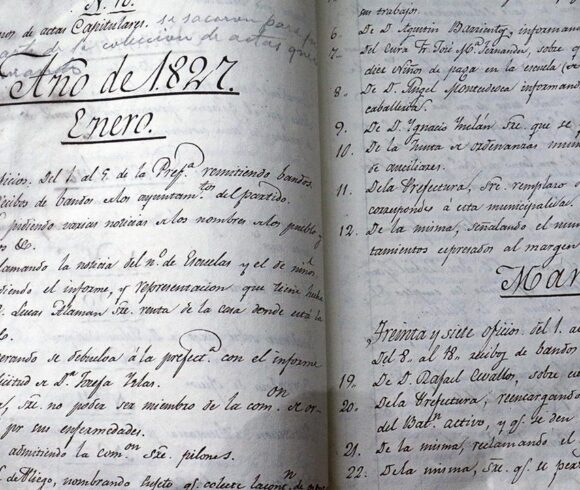 N. 10.
de actas Capitulares. se sacaron para
de la coleccion de actas que
Año de 1827.
Enero.
Del 1. al 5. de la Pref.ª remitiendo bandos.
recibos de bandos a los ayuntam.tos del partido.
pidiendo varias noticias a los nombres a los pueblos y
&.
la noticia del n.º de Escuelas y el de
el informe, y representacion que tiene hecha
Lucas Alaman Sre. renta de la casa donde está la
se debuelva á la prefect.ª con el informe
de D.ª Josefa Islas.
Sre. no poder ser miembro de la com.on de or-
por sus enfermedades.
admitiendo la com.on Sre. pilones.
de Pliego, nombrando sugeto q.e
sus trabajos.
6. De D. Agustin Barriento, informando
7. Del Cura Fr. José M.ª Fernandez, sobre q
diez niños de paga en la escuela
8. De D. Angel Montedesca informando
caballeria.
9. De D. Ignacio Inclán Sre. que se
10. De la Junta de ordenanzas mun
se auciliares.
11. De la Prefectura, Sre. remplazo
corresponde á esta municipalid.
12. De la misma, señalando el num
tamientos espresados al margen
Mar
Treinta y siete oficios del 1. a
Del 8. al 18. recibos de bandos
19. De D. Rafael Cevallos, sobre
20. De la Prefectura, reencargando
del Bat.on activo, y q.e se den
21. De la misma, reclamando el
22. De la misma, Sre. q.e se